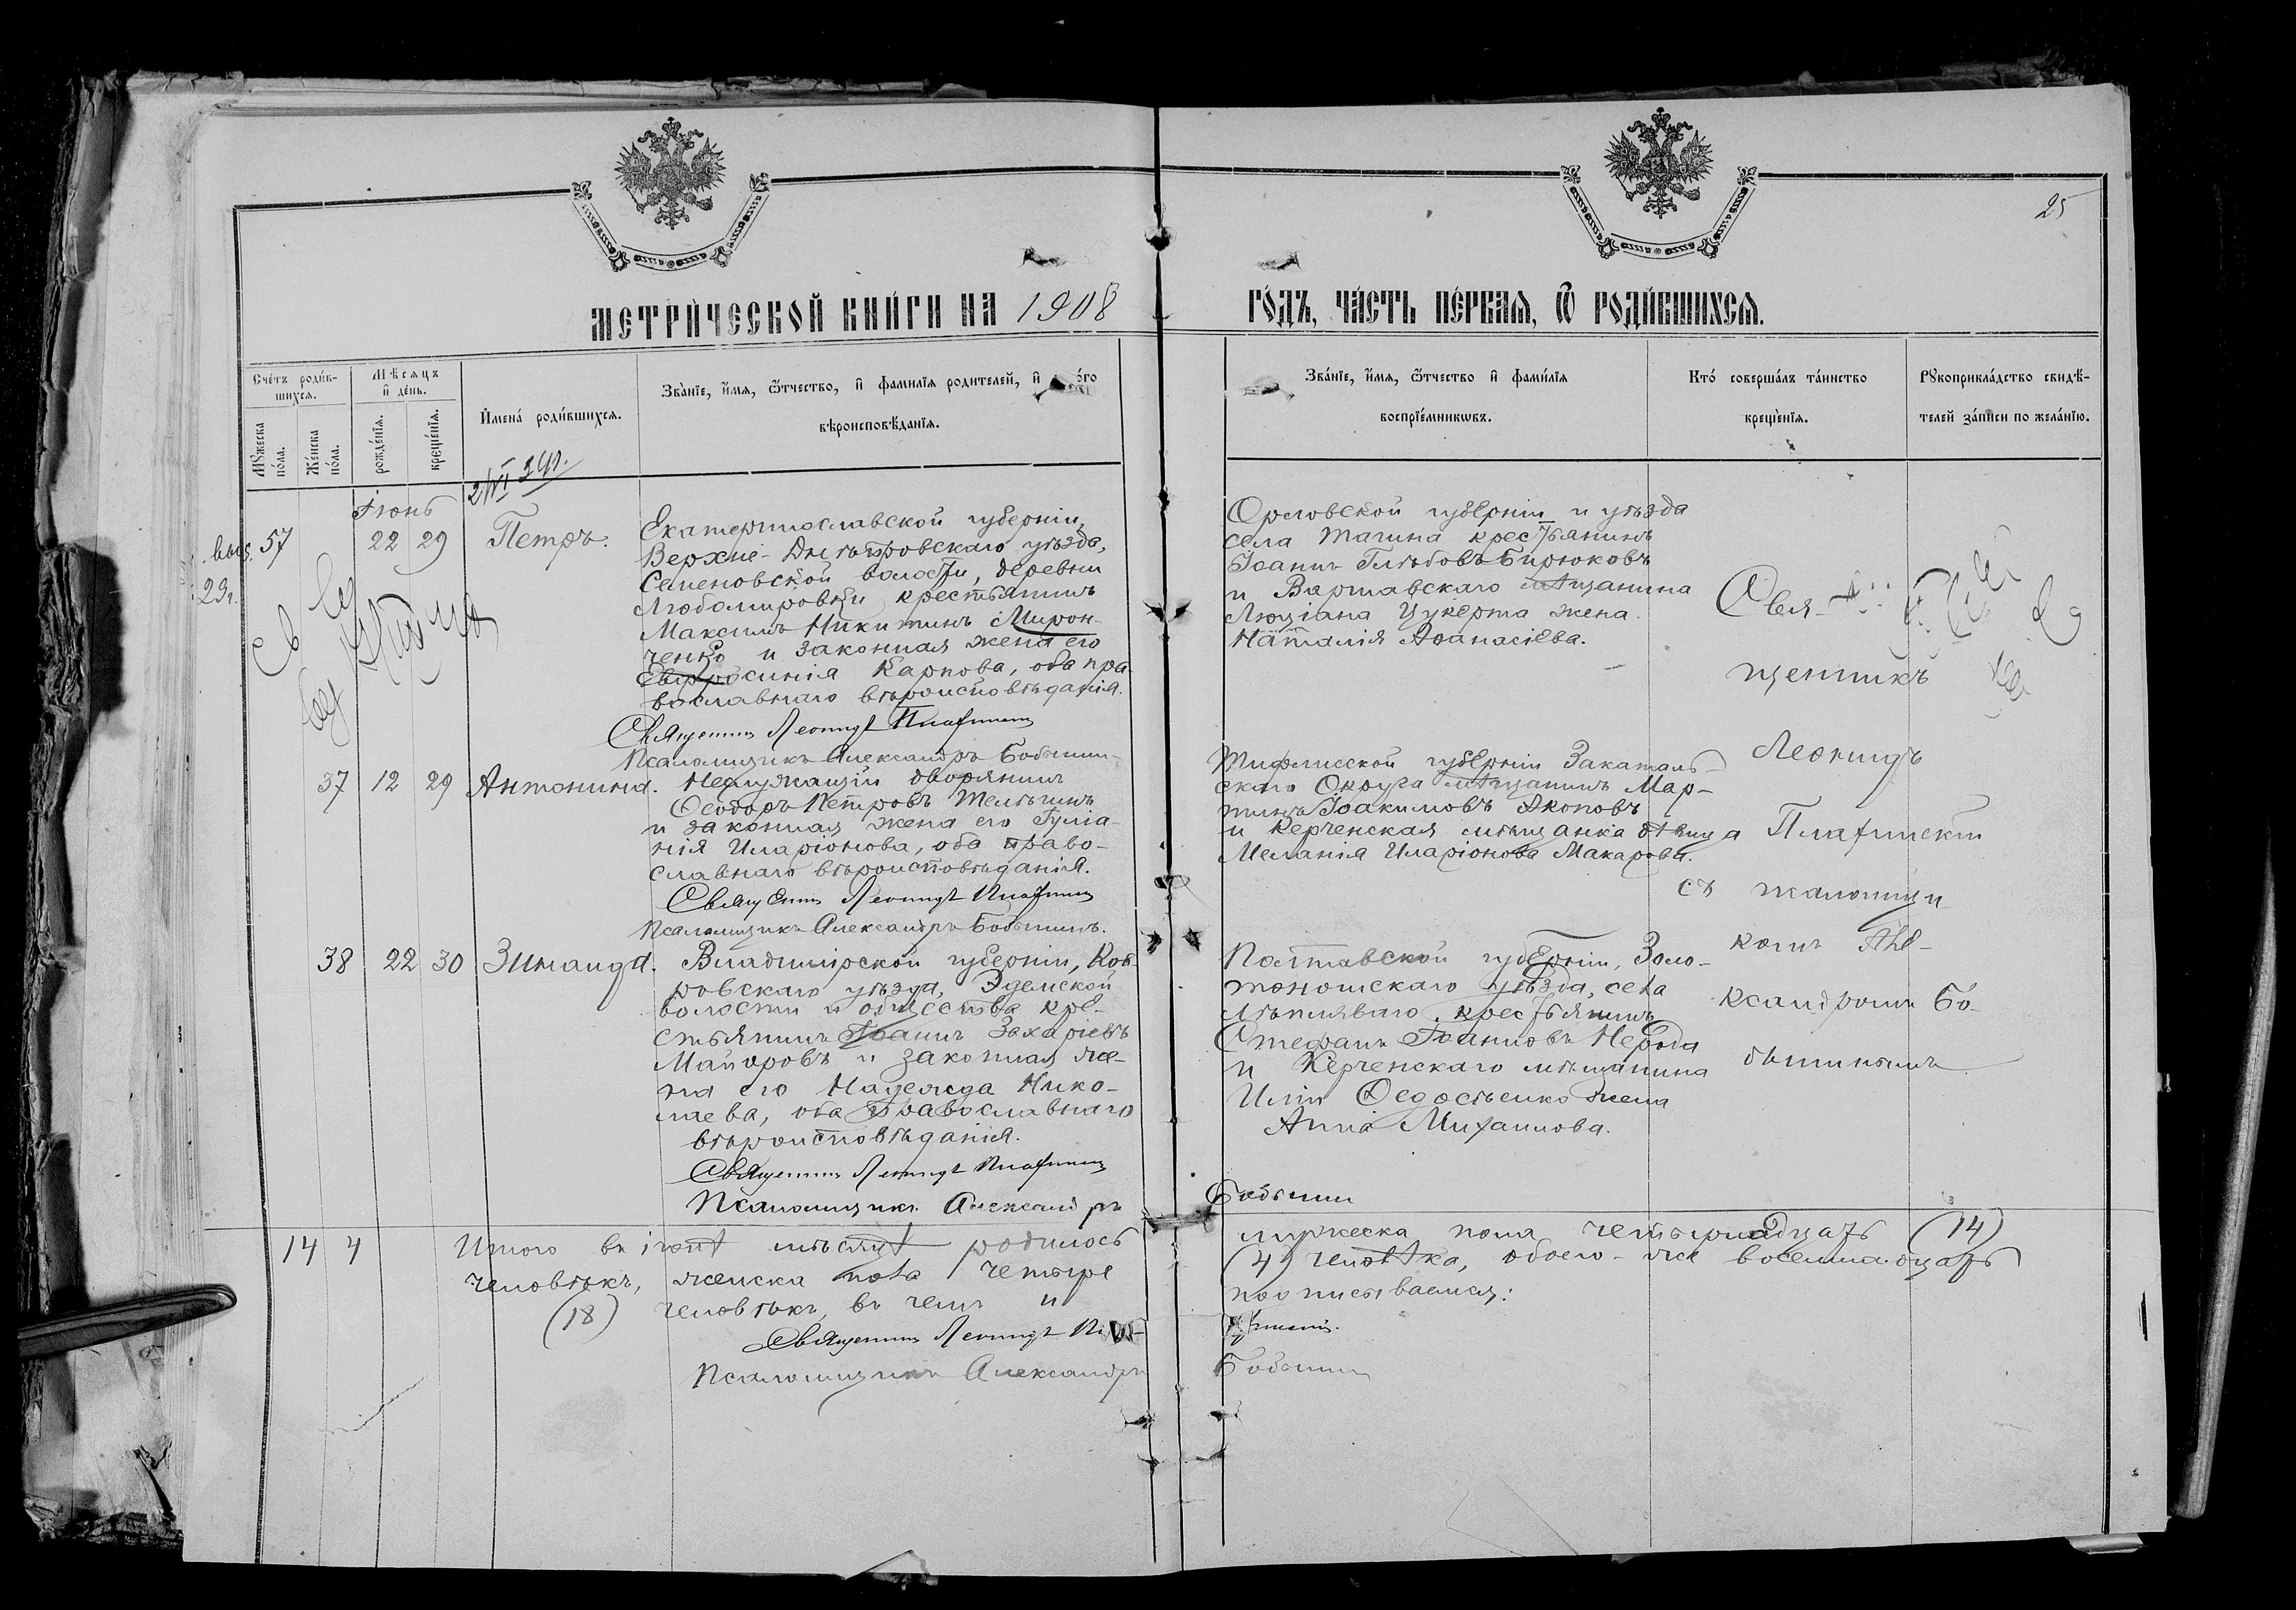 25
МЕТРИ́ЧЕСКОЙ КНИ́ГИ НА 1908
ГО́ДЪ, ЧА́СТЬ ПЕ́РВАЯ, Ѽ РОДИ́ВШИХСЯ.
Сче́тъ роди́в-
шихся.
Мꙋ́жеска по́ла.
Же́нска по́ла.
Мѣ́сяцъ
и де́нь.
рожде́нїя.
креще́нїя.
Имена́ роди́вшихся.
Зва́нїе, и́мя, ѻ҆́тчество, и фами́лїя роди́телей, и
вѣроисповѣ́данїя.
Зва́нїе, и́мя, ѻ҆́тчество и фами́лїя
воспрїе́мникѡвъ.
Кто́ соверша́лъ та́инство
креще́нїя.
Рꙋкоприкла́дство свидѣ́-
телей за́писи по жела́нїю.
Іюнь
57 22 29 Петръ.
Екатеринославской губерніи,
Верхне-Днѣпровскаго уѣзда,
Семеновской волости, деревни
Любомировки крестьянинъ
Максимъ Никитинъ Мирон-
ченко и законная жена его
Евфросинія Карпова, оба пра-
вославнаго вѣроисповѣданія.
Священникъ Леонидъ
Псаломщикъ Александръ
Орловской губерніи и уѣзда
села Тагина крестьянинъ
Іоаннъ Глѣбовъ Бирюковъ
и Варшавскаго мѣщанина
Люціана Цукерта жена
Наталія Аѳанасіева.
37 12 29 Антонина.
Неслужащій дворянинъ
Ѳеодоръ Петровъ
и законная жена его Іулiа-
нія Иларіонова, оба право-
славнаго вѣроисповѣданія.
Священникъ Леонидъ
Псаломщикъ Александръ
Тифлисской губерніи Закаталь-
скаго Округа мѣщанинъ Мар-
тинъ Іоакимовъ Акоповъ
и Керченская мѣщанка дѣвица
Меланія Иларіонова Макарова.
38 22 30 Зинаида.
Владимірской губерніи, Ков-
ровскаго уѣзда, Эдемской
волости и общества кре-
стьянинъ Іоаннъ Захаріевъ
Майоровъ и законная же-
на его Надежда Нико-
лаева, оба православнаго
вѣроисповѣданія.
Священникъ Леонидъ
Псаломщикъ Александръ
Полтавской губерніи, Золо-
тоношскаго уѣзда, села
крестьянинъ
Стефанъ Іоанновъ Нерода
и Керченскаго мѣщанина
Иліи жена
Анна Михаилова.
Свя-
щенникъ
Леонидъ
съ псаломщи
комъ Але-
ксандромъ Бо-
14 4 Итого въ іюнѣ мѣсяцѣ родилось
мужеска пола четырнадцать (14)
человѣкъ, женска пола четыре
(4) человѣка, обоего-же восемнадцать
(18) человѣкъ, въ чемъ и
подписываемся:
Священникъ Леонидъ
Псаломщикъ Александръ